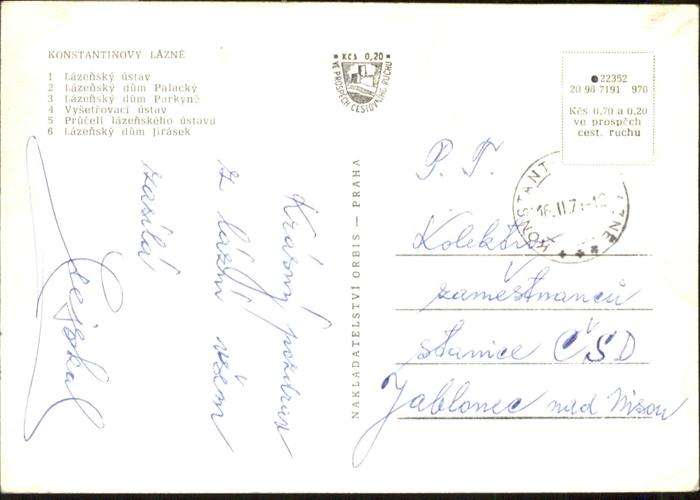 KONSTANTINOVY LÁZNĚ
1 Lázeňský ústav
2 Lázeňský dům Palacký
3 Lázeňský dům Purkyně
4 Vyšetřovací ústav
5 Průčelí lázeňského ústavu
6 Lázeňský dům Jirásek
Kčs 0,20
VE PROSPĚCH CESTOVNÍHO RUCHU
22352
20 98 7191 970
Kčs 0,70 a 0,20
ve prospěch
cest. ruchu
16.II.7
NAKLADATELSTVÍ ORBIS – PRAHA
Krásný pozdrav
z lázní všem
zasílá
P. T.
Kolektiv
zaměstnanců
stanice ČSD
Jablonec nad Nisou